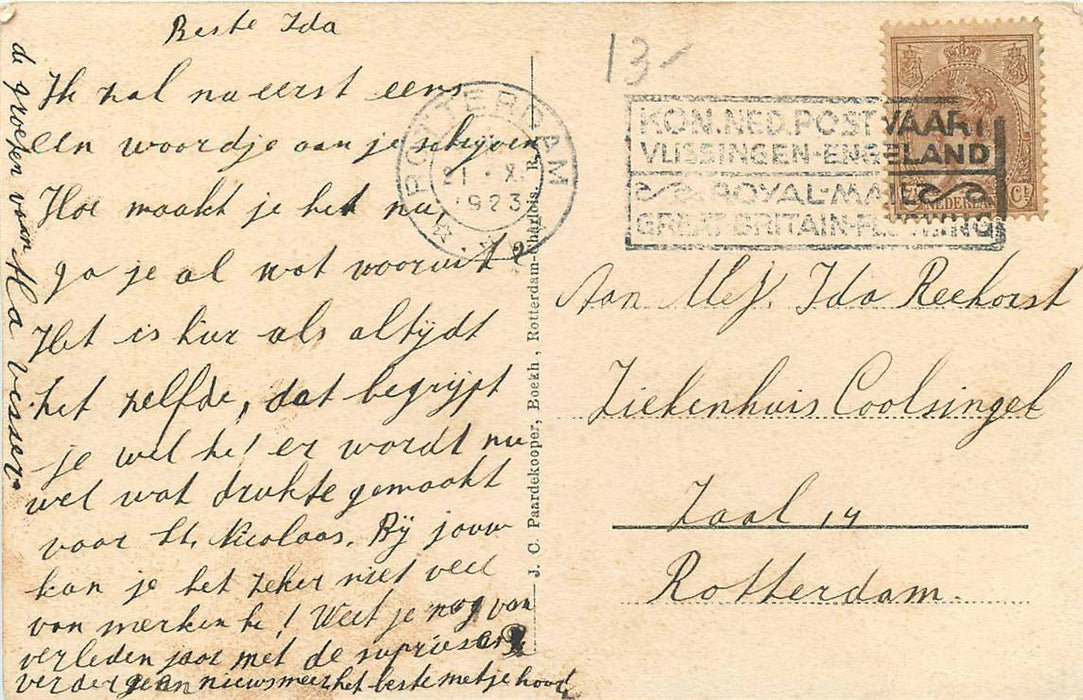 Beste Ida
Ik zal nu eerst eens
een woordje aan je schijven
Hoe maakt je het nu,
ga je al wat vooruit?
Het is hier als altijdt
het zelfde, dat begrijpt
je wel hé! er wordt nu
wel wat drukte gemaakt
voor St. Nicolaas. Bij jouw
kan je het zeker niet veel
van merken hé! Weet je nog van
verleden jaar met de
verder geen nieuws meer het beste met je hoor
de groeten van
Visser
13-
ROTTERDAM
21 X
1923
KON. NED. POSTVAART
VLISSINGEN-ENGELAND
ROYAL-MAIL
GREAT BRITAIN-FLUSHING
Ct
NEDERLAND
Aan Mej. Ida Reehorst
Ziekenhuis Coolsingel
Zaal 14
Rotterdam.
J. C. Paardekooper, Boekh., Rotterdam-Charlois. R.